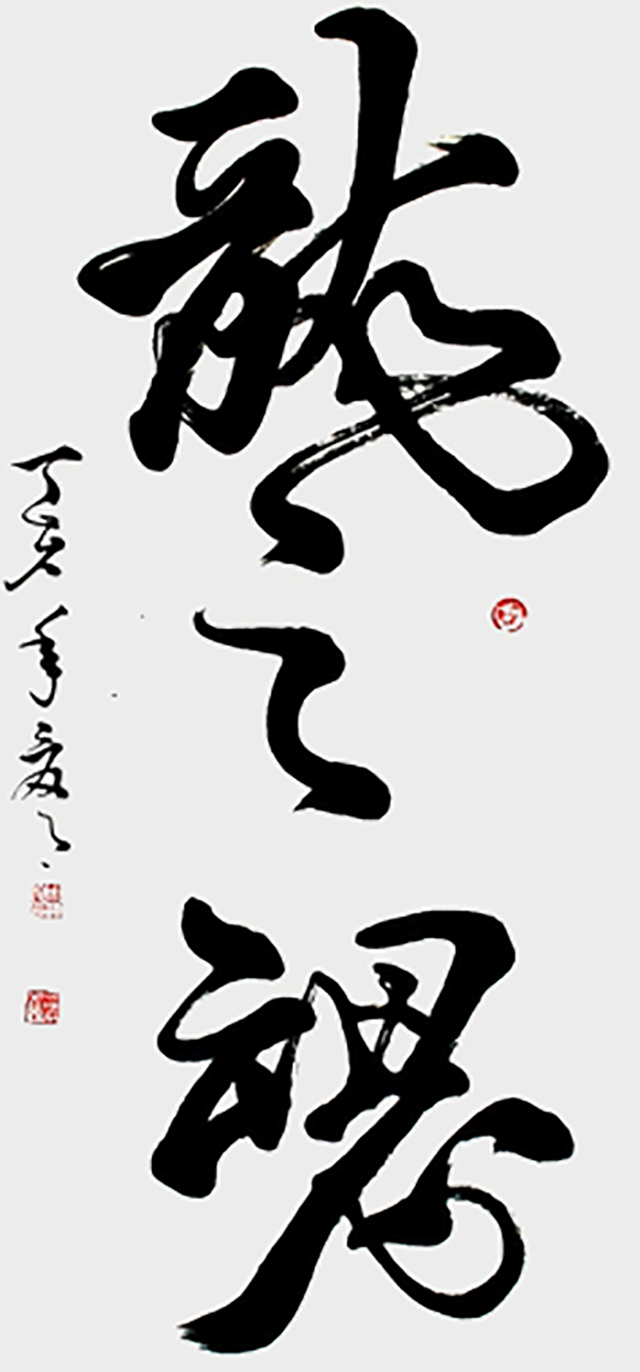 龍之魂
丁亥年